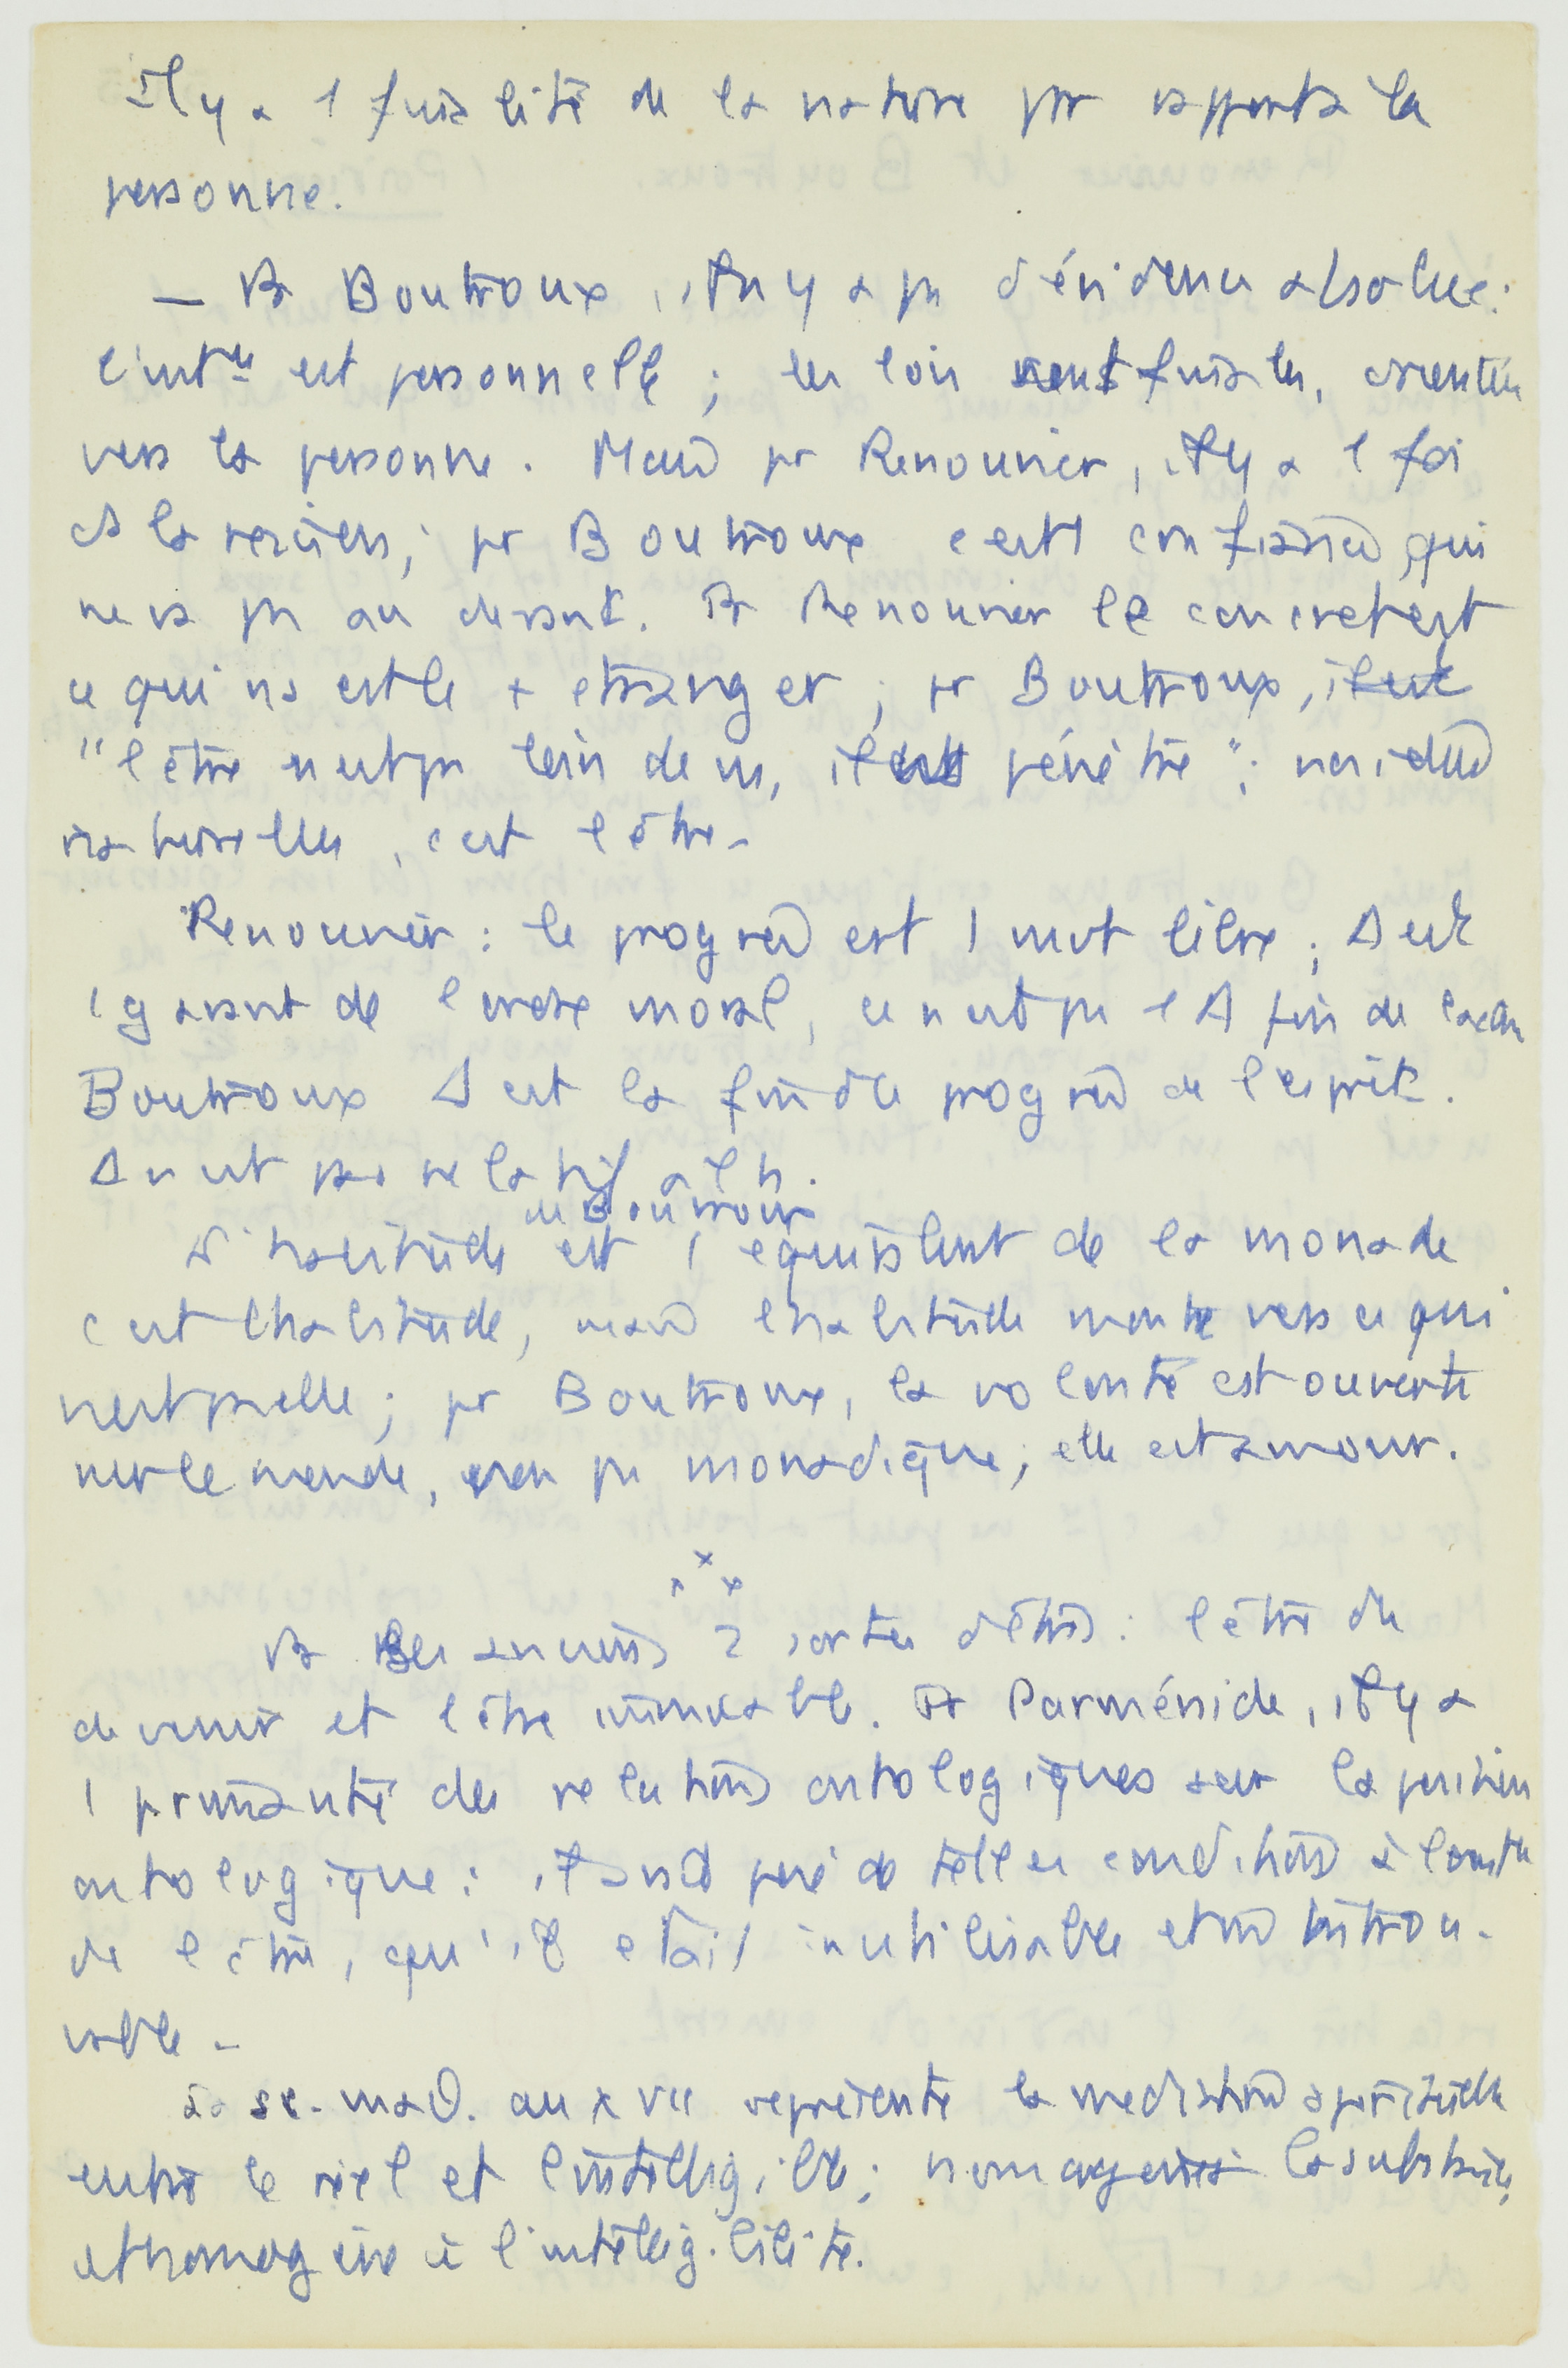 Il y a 1 finalité de la nature par rapport à la
personne.
— Pr Boutroux, il n'y a pas d'évidence absolue :
est personnelle ; les lois sont finales, orientées
vers la personne. Mais pr Renouvier, il y a 1 foi
ds la raison ; pr Boutroux c'est 1 confiance qui
ne va pas au devant. Pr Renouvier le concret est
ce qui ns est le + étranger ; pr Boutroux, il est
"l'être n'est pas loin de ns, il est pénétré" ;
naturelles, c'est l'être.
Renouvier : le progrès est 1 mot libre ; Δ est
1 garant de l'ordre moral, ce n'est pas 1 Δ fin de
Boutroux Δ est la fin du progrès de l'esprit.
Δ n'est pas relatif à l'h.
de Boutroux
est l'équivalent de la monade
c'est l'habitude, mais l'habitude monte vers ce qui
n'est pas elle ; pr Boutroux, la volonté est ouverte
sur le monde, non pas monadique ; elle est amour.
x x x
Pr les anciens 2 sortes d'êtres : l'être du
devenir et l'être immuable. Pr Parménide, il y a
1 primauté des relations ontologiques sur la position
ontologique : il avait posé de telles conditions à
de l'être, qu'il était inutilisable et introu-
vable.
La sc. mod. au XVII représente la médiation spirituelle
entre le réel et l'intelligible ; la substance
est homogène à l'intelligibilité.